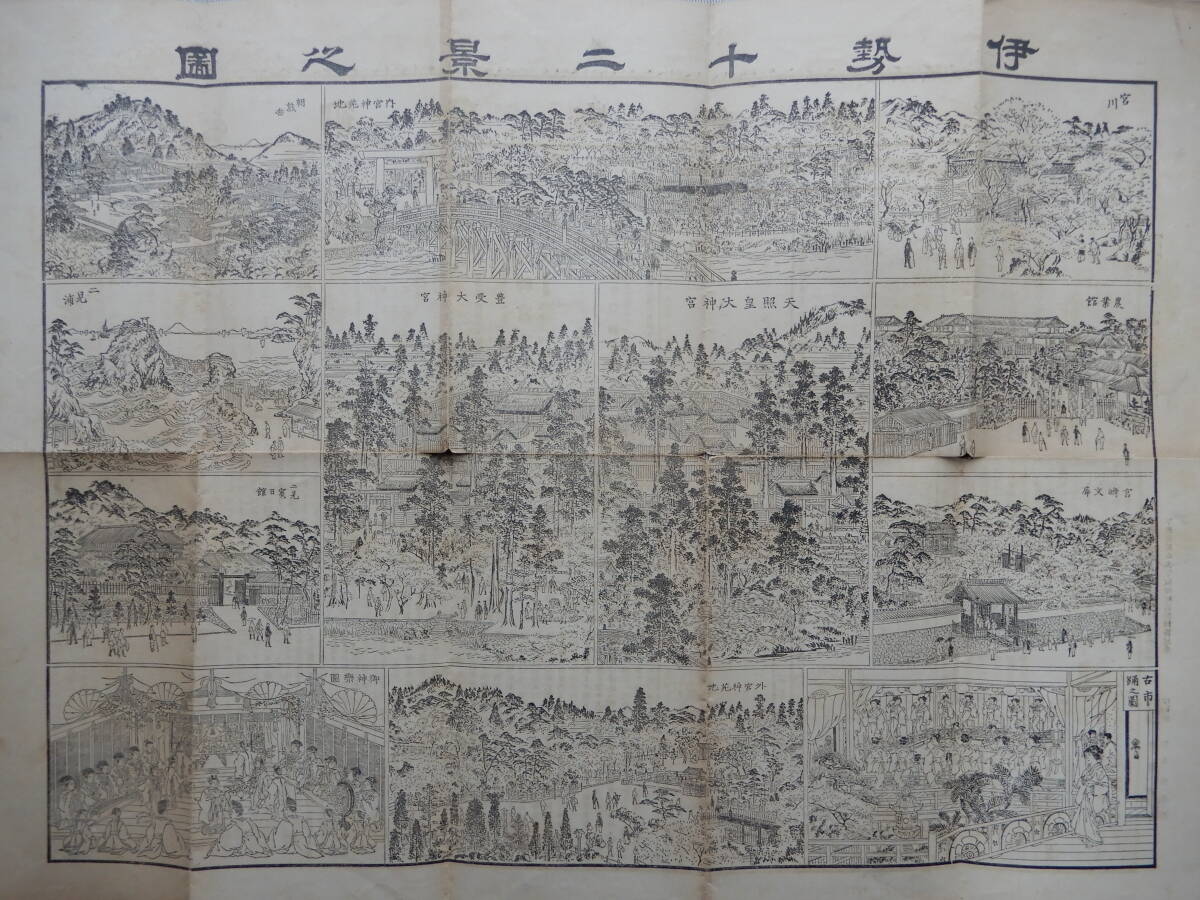 伊勢十二景之圖
宮川
内宮神苑地
農業館
天照皇大神宮
豊受大神宮
二見浦
宮崎文庫
二見賓日館
古市
踊之圖
外宮神苑地
御神樂圖